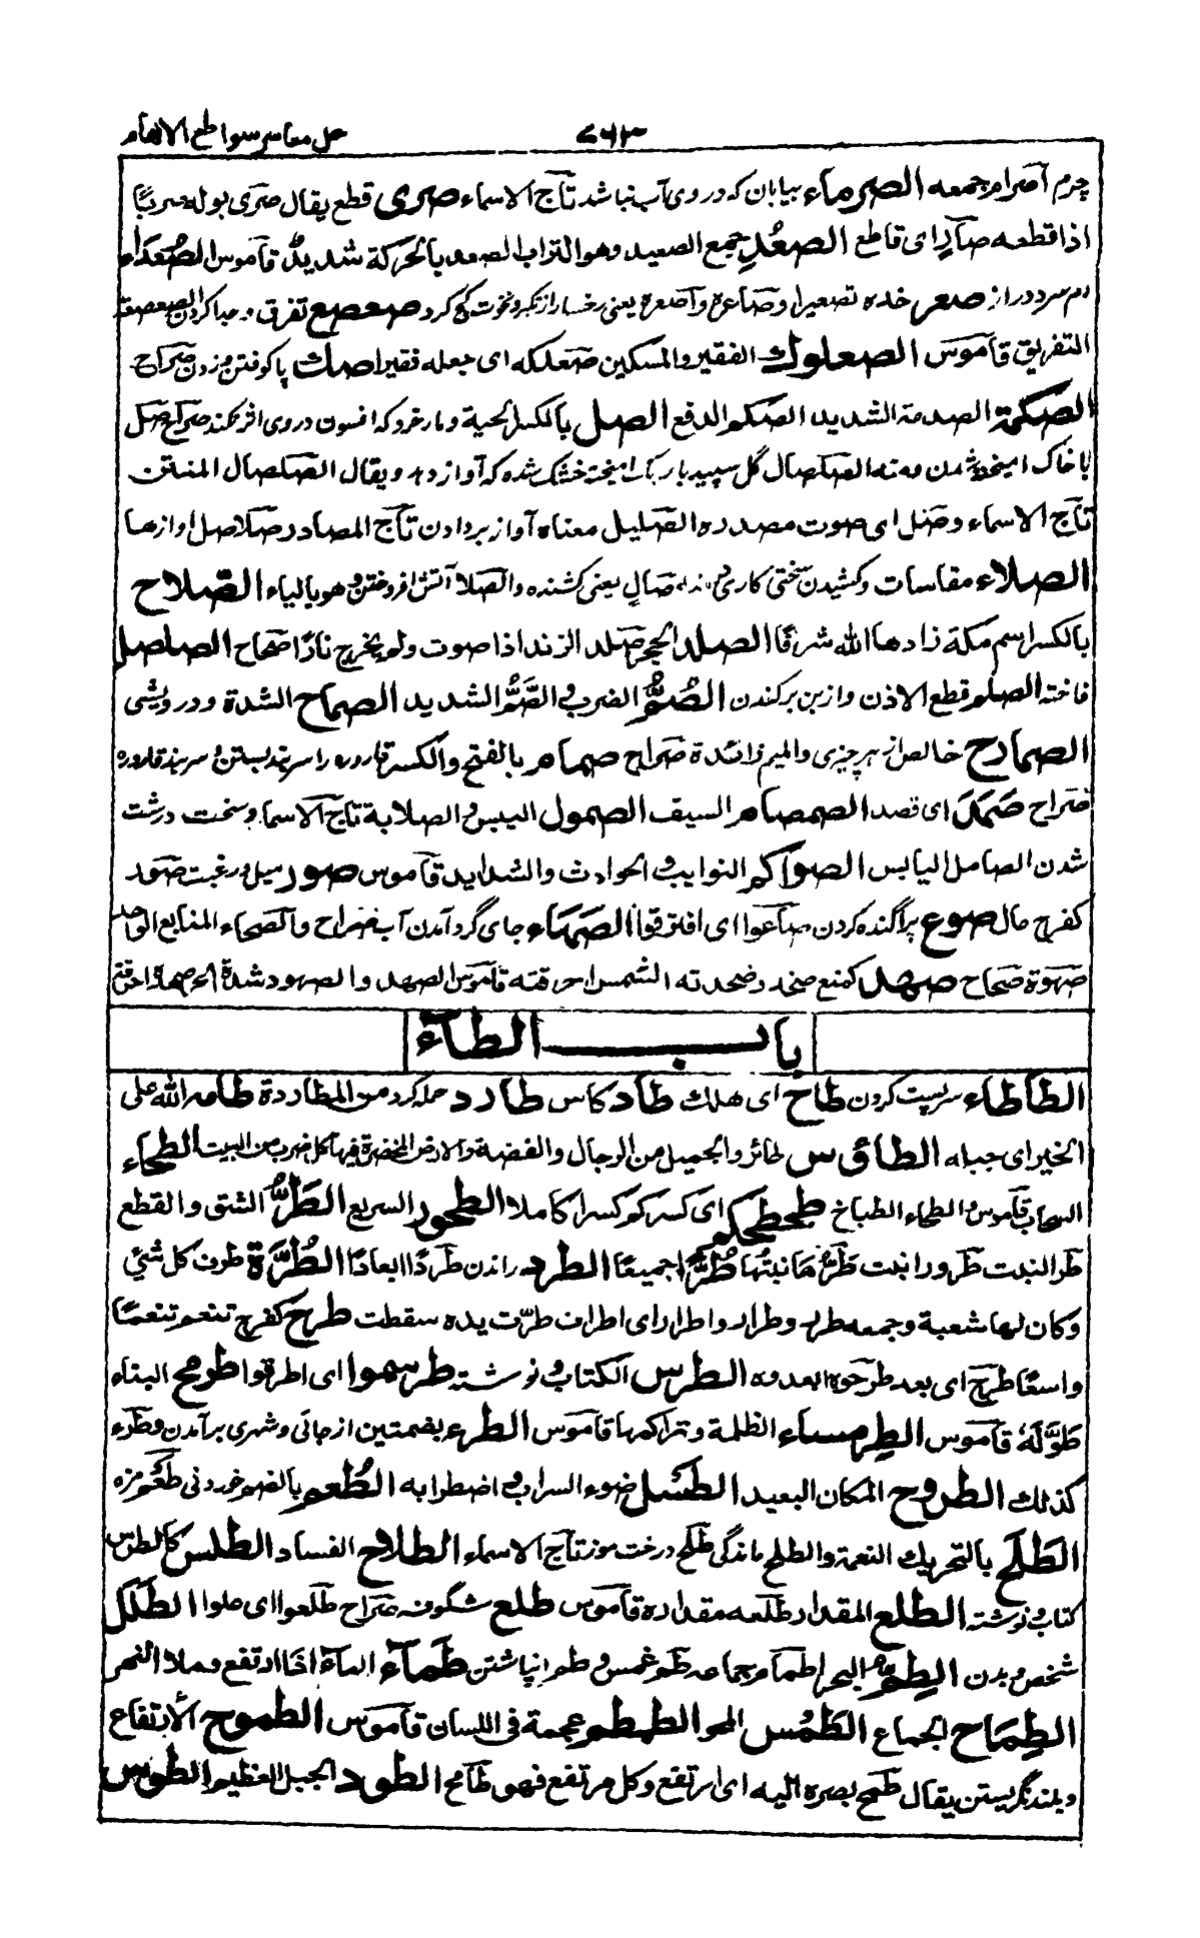 حل معاسر سواطع الالهام ۷۶۳
چرم آصرام جمعه الصرماء بیابان که در وی آب نباشد تاج الاسماء صری قطع یقال صری بوله صریًا
اذا قطعه صار ای قاطع الصعُد جمع الصعید وهو التراب الصعد بالحرکة شدید قاموس الصُعَداء
دم سرد دراز صعر خده تصعیرا وصاعره وآصعره یعنی رخسار از تکبر ونخوت کج کرد صعصع تفرق وجدا کردن الصعصعة
التفریق قاموس الصعلوك الفقیر والمسکین صعلکه ای جعله فقیرا صك پا کوفتن وزدن صراح
الصکمة الصدمة الشدیدا الصکم الدفع الصل بالکسر الحیة ومار خرد که افسون در وی اثر نکند صراح صل
با خاک آمیخته شدن ومنه الصلصال گل سپید بار یک آمیخته خشک شده که آواز دهد ویقال الصلصال المنتن
تاج الاسماء وصل ای صوت مصدره الصلیل معناه آواز بر دادن تاج المصادر صلاصل اوازها
الصلاء مقاسات وکشیدن سختی کاری صال یعنی کشنده والصلا آتش افروختن وهو بالیاء الصّلاح
بالکسر اسم مکة زادها الله شرفا الصلد الحجر صلد الزند اذا صوت ولم یخرج نارًا صحاح الصلصل
فاخته الصلم قطع الاذن واز بن برکندن الصُمُّ الضرب والصَّمُّ الشدید الصماح الشدة ودرویشی
الصمادح خالص از هر چیزی والمیم زائدة صراح صمام بالفتح والکسر قاروره را سربند بستن وسربند قاروره
صراح صَمَدَ ای قصد الصمصام السیف الصمول الیبس والصلابة تاج الاسماء وسخت ودرشت
شدن الصامل الیابس الصواکم النوایب والحوادث والشداید قاموس صور میل ورغبت صور
کفرح مال صوع پراگنده کردن صاعوا ای افترقوا الصَهَاء جای گرد آمدن آب صراح والصحاء المنابع الواحد
صهوة صحاح صهد کمنع صخد وضحدته الشمس احرقته قاموس الصهد والصهود شدة الحر
باب الطآء
الطأطاء سر پست کردن طاح ای هلك طاد کاس طارد حمله کرد من المطاردة طامه الله علی
الخیر ای جبله الطاؤس طائر والجمیل من الرجال والفضة والارض المخضرة فیها کل ضرب من البیت الطحاء
السحاب قاموس والطحاء الطباخ طحطحکم ای کسرکم کسرا کاملا الطحور السریع الطَرُّ الشق والقطع
طر النبت طر ورا نبت طَرَّ ها نبتُها طُرًّا جمیعًا الطرد راندن طردًا ابعادًا الطُرَّة طرف کل شئ
وکان لها شعبة وجمعه طرر وطرار واطرار ای اطراف طرّت یده سقطت طرح کفرح تنعم تنعمًا
واسعًا طرح ای بعد طرحوه ابعدوه الطرس الکتاب ونوشته طرسموا ای اطرقوا طرمح البناء
طَوَّلَهُ قاموس الطِرمساء الظلمة وتراکمها قاموس الطرء بضمتین از جائی وشهری برآمدن وطرء
کذلك الطروح المکان البعید الطسل ضوء السراب واضطرابه الطُعم بالضم خوردنی طعم مزه
الطَلَح بالتحریك النعمة والطلح ماندگی طلح درخت موز تاج الاسماء الطلاح الفساد الطلس کالطرس
کتاب ونوشته الطلع المقدار طلعه مقداره قاموس طلع شگوفه صراح طلعوا ای علوا الطلل
شخص وبدن الطِمُّ البحر اطمام جماعه طم غمس وطم انپاشتن طمآء المآء اذا ارتفع وملا النهر
الطِمَاح الجماع الطَمْس المحو الطمطم عجمة فی اللسان قاموس الطموح الأرتفاع
وبلند نگریستن یقال طمح بصره الیه ای ارتفع وکل مرتفع فهو طامح الطود الجبل العظیم الطوس